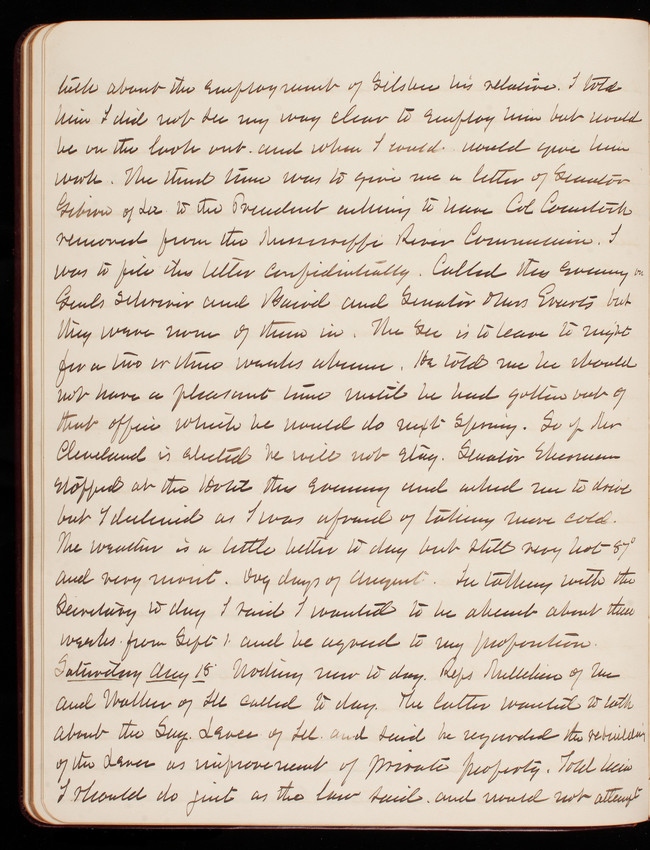 talk about the employment of Gilshee his relative. I told
him I did not see my way clear to employ him but would
be on the look out. and when I could would give him
work. The third time was to give me a letter of Senator
Gibson of La to the President asking to have Col Comstock
removed from the Mississippi River Commission. I
was to file this letter confidentially. Called this evening on
Genls Schriver and Baird and Senator Evarts but
they were none of them in. The Sec is to leave to night
for a two or three weeks absence. He told me he should
not have a pleasant time until he had gotten out of
that office which he would do next Spring. So if Mr
Cleveland is elected he will not stay. Senator Sherman
stopped at the Hotel this evening and asked me to drive
but I declined as I was afraid of taking more cold.
The weather is a little better to day but still very hot 87°
and very moist. Dog days of August. In talking with the
Secretary to day I said I wanted to be absent about three
weeks from Sept 1. and he agreed to my proposition.
Saturday Aug 18 Nothing new to day. Reps Milliken of Me
and Walker of called to day. The latter wanted to talk
about the Levee of and said he regarded the rebuilding
of the Levee as improvement of private property. Told him
I should do just as the law said. and would not attempt